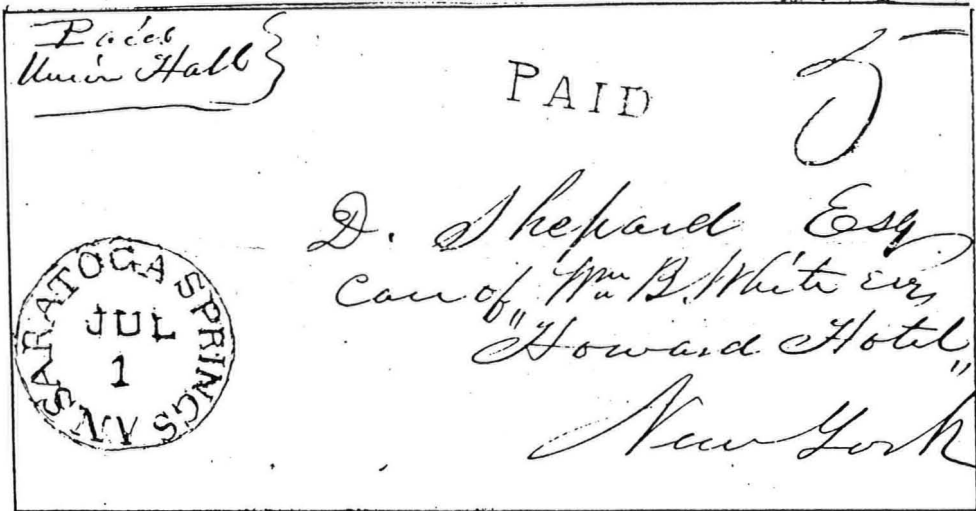 Paid
Union Hall
PAID
5
D. Shepard Esq
Care of Wm B. White Esq
"Howard Hotel"
New York
SARATOGA SPRINGS N.Y
JUL
1